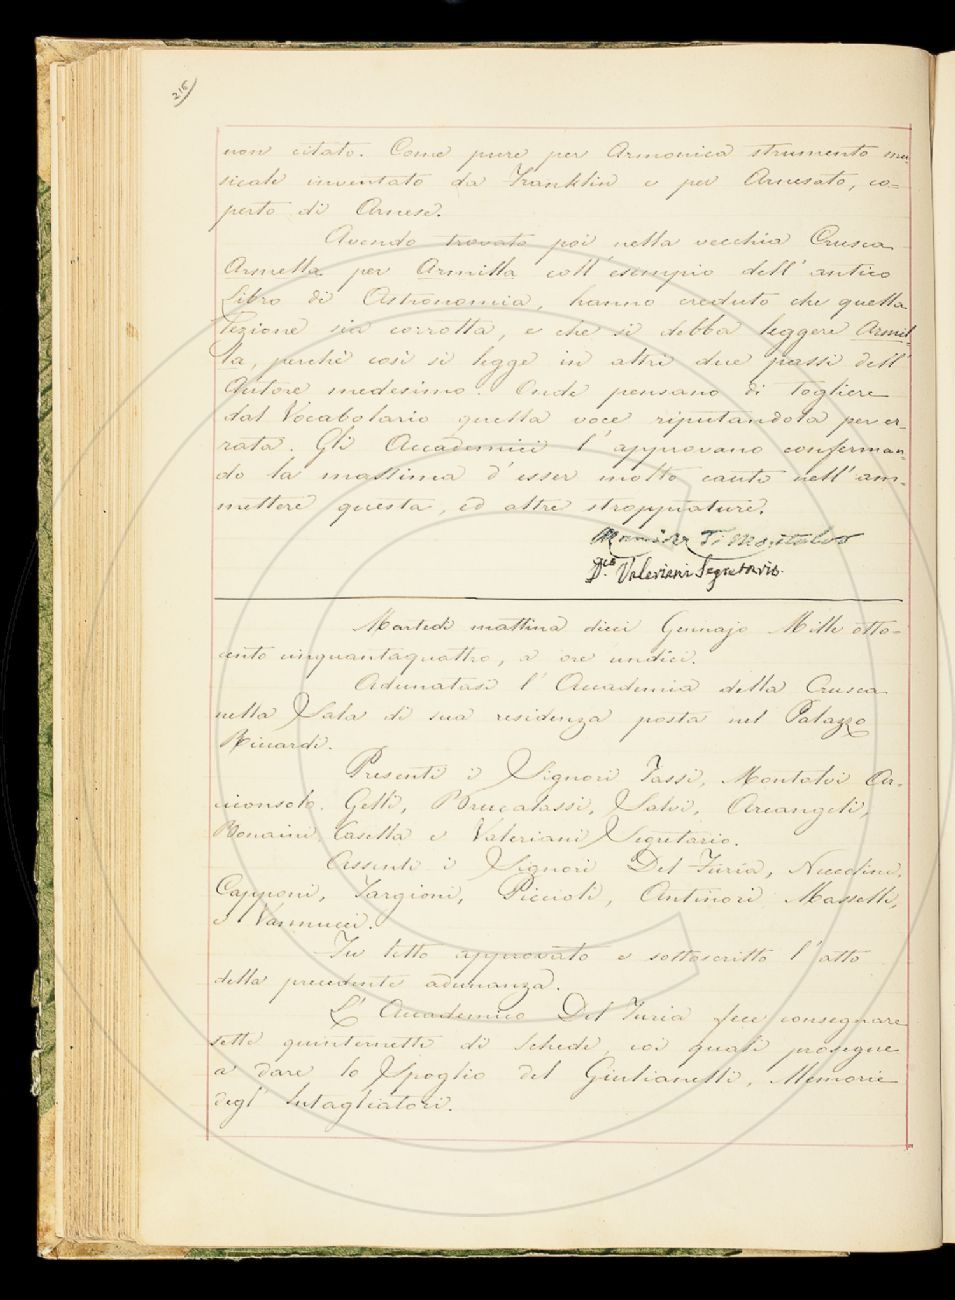 216
non citato. Come pure per Armonica strumento mu-
sicale inventato da Franklin e per Arnesato, co=
perto di Arnese.
Avendo trovato poi nella vecchia Crusca
Armella per Armilla coll'esempio dell'antico
Libro di Astronomia, hanno creduto che quella
Lezione sia corrotta, e che si debba leggere Armil-
la, perchè così si legge in altri due passi dell'
Autore medesimo. Onde pensano di togliere
dal Vocabolario quella voce riputandola per er-
rata. Gli Accademici l'approvano conferman=
do la massima d'esser molto cauti nell'am=
mettere questa, ed altre stroppiature.
Valeriani Segretario
Martedì mattina dieci Gennajo Mille otto=
cento cinquantaquattro, a ore undici.
Adunatasi l'Accademia della Crusca
nella Sala di sua residenza posta nel Palazzo
Riccardi.
Presenti i Signori Tassi, Montalvi Ar-
ciconsolo. Gelli, Brucalassi, Salvi, Arcangeli,
Bonaini, Casella e Valeriani Segretario.
Assenti i Signori Del Furia, Niccolini,
Capponi, Targioni, Piccioli, Antinori, Masselli,
e Vannucci.
Fu letto approvato e sottoscritto l'atto
della precedente adunanza.
L'Accademico Del Furia fece consegnare
sette quinternetti di schede, coi quali prosegue
a dare lo Spoglio del Giulianelli, Memorie
degl'Intagliatori.